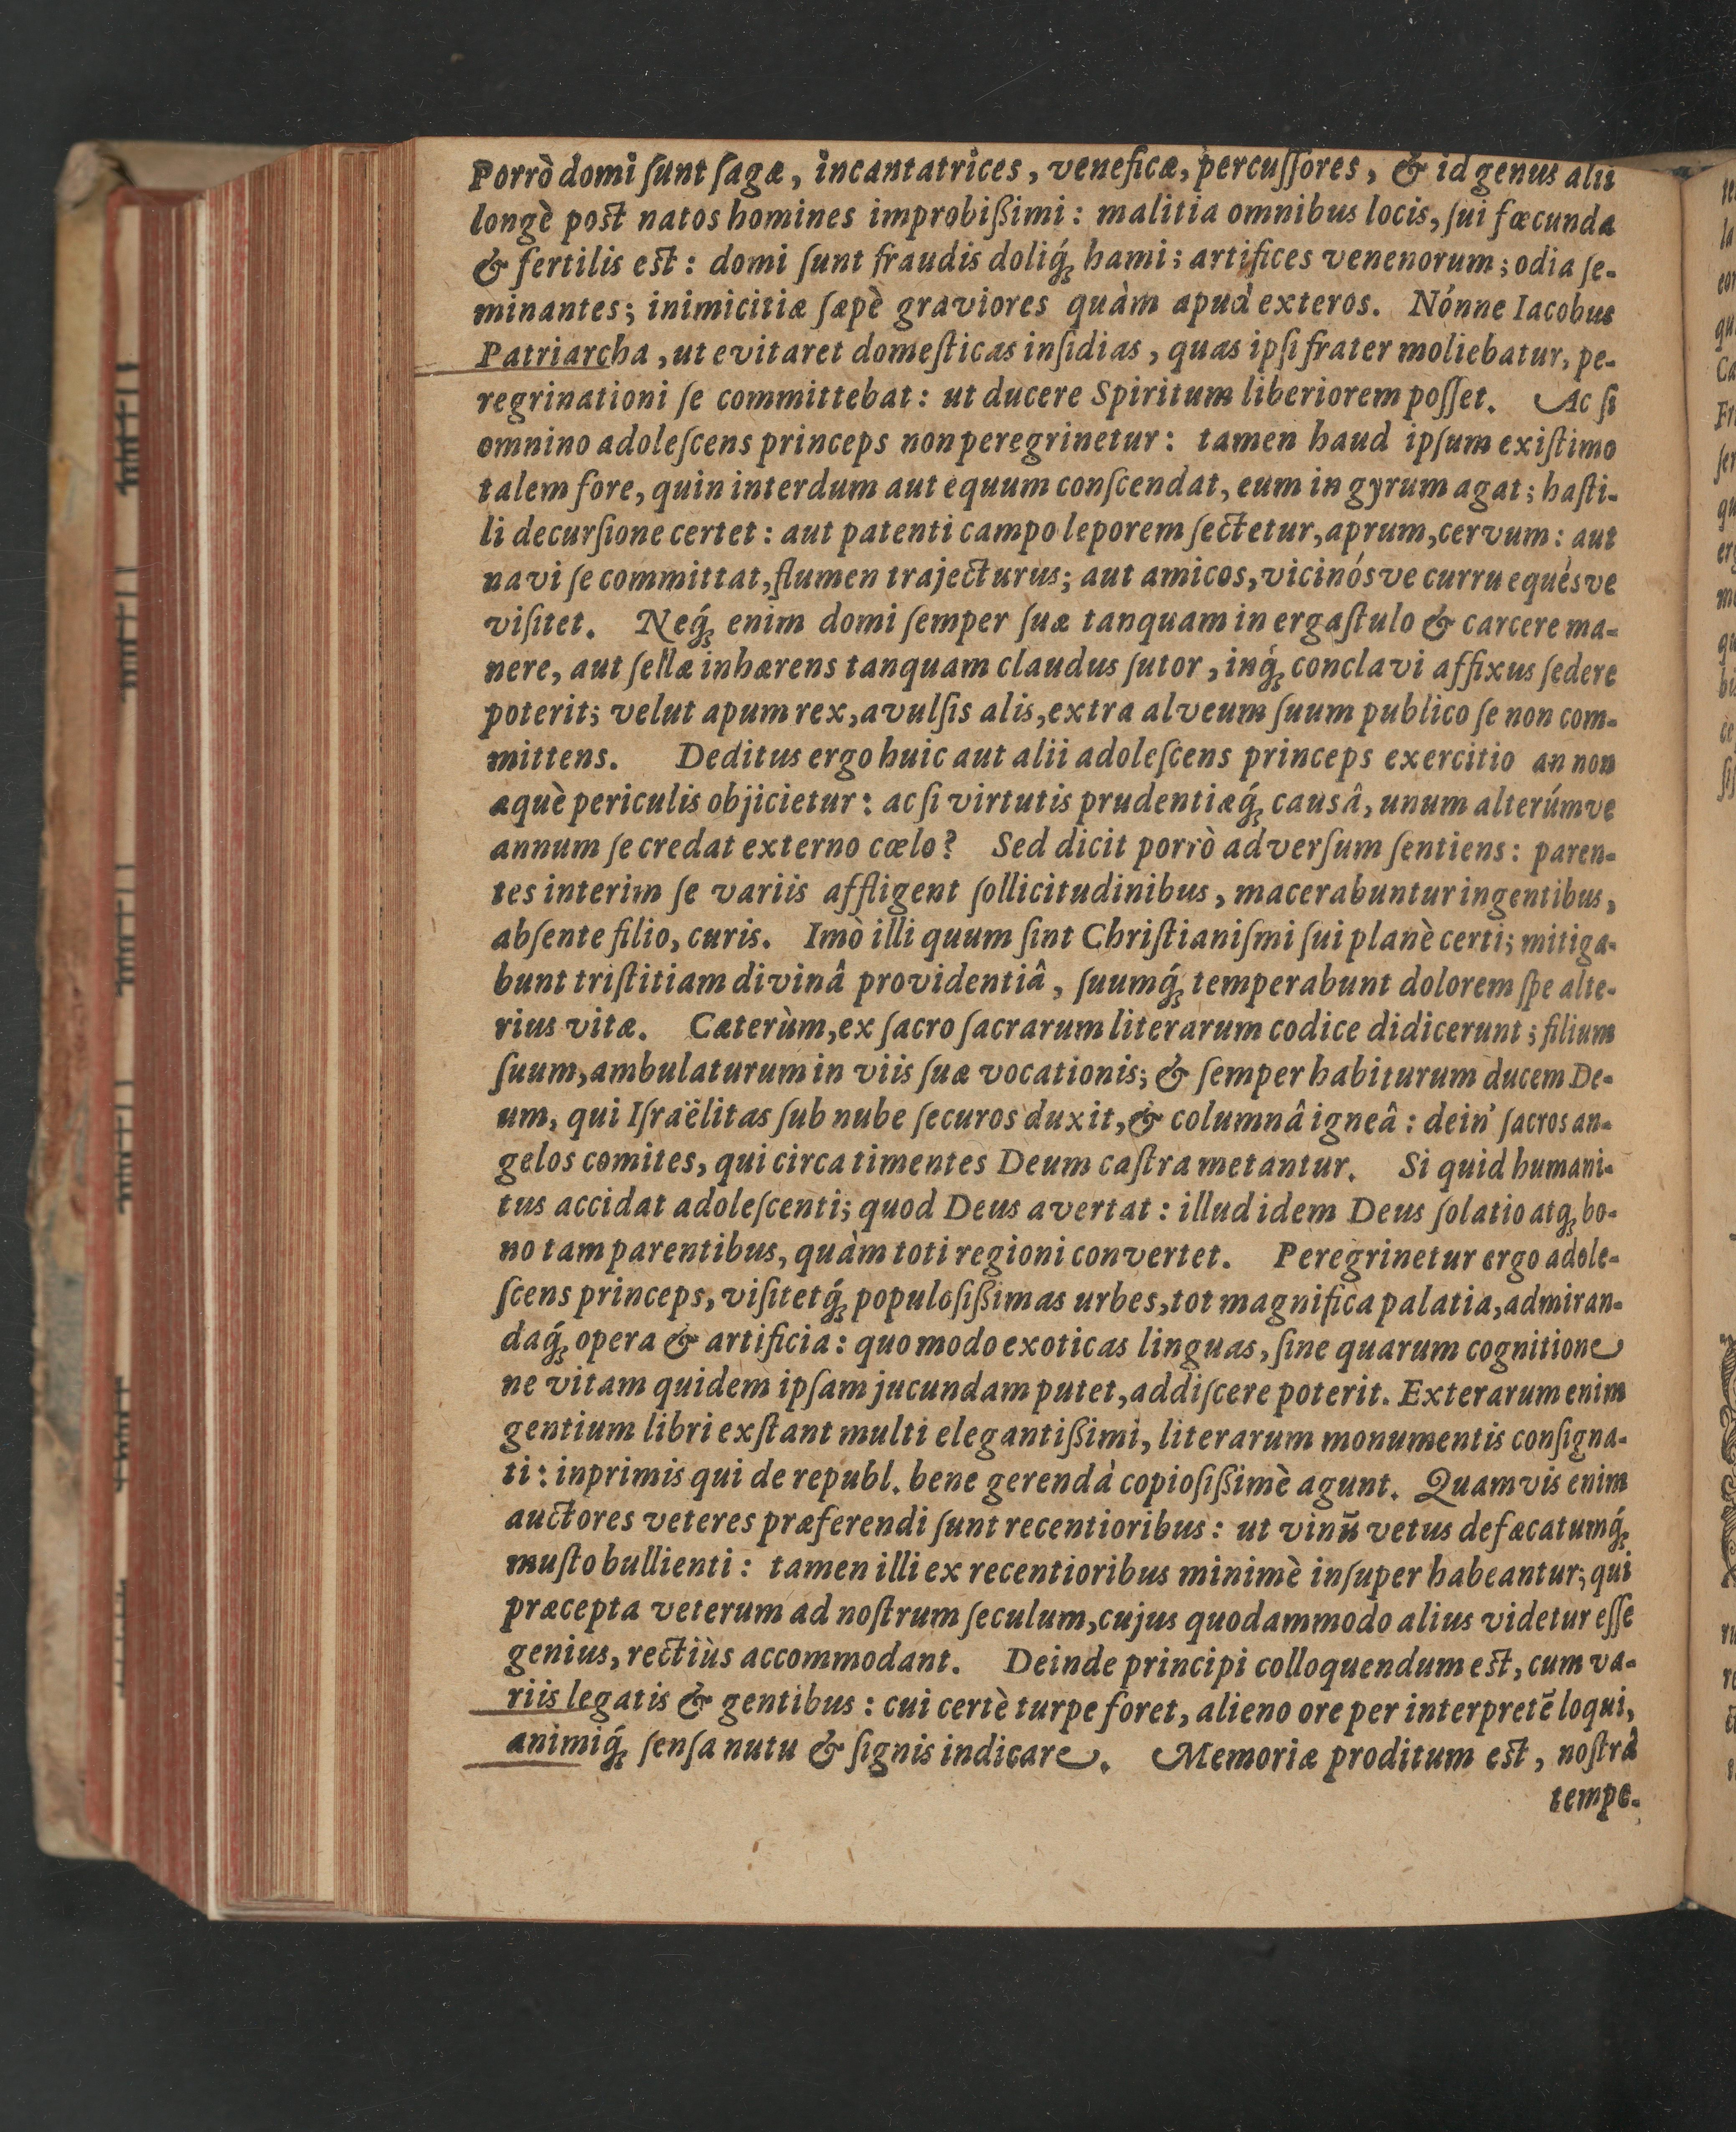 Porrò domi ſunt ſagæ, incantatrices, veneficæ, percuſſores, & id genus alii
longè post natos homines improbißimi: malitia omnibus locis, ſui fœcunda
& fertilis est: domi ſunt fraudis doliq́; hami; artifices venenorum; odia ſe-
minantes; inimicitiæ ſæpè graviores quàm apud exteros. Nónne Iacobus
Patriarcha, ut evitaret domeſticas inſidias, quas ipſi frater moliebatur, pe-
regrinationi ſe committebat: ut ducere Spiritum liberiorem poſſet. Ac ſi
omnino adoleſcens princeps non peregrinetur: tamen haud ipſum exiſtimo
talem fore, quin interdum aut equum conſcendat, eum in gyrum agat; haſti-
li decurſione certet: aut patenti campo leporem ſectetur, aprum, cervum: aut
navi ſe committat, flumen trajecturus; aut amicos, vicinósve curru equésve
viſitet. Neq́; enim domi ſemper ſuæ tanquam in ergaſtulo & carcere ma-
nere, aut ſellæ inhærens tanquam claudus ſutor, inq́; conclavi affixus ſedere
poterit; velut apum rex, avulſis alis, extra alveum ſuum publico ſe non com-
mittens. Deditus ergo huic aut alii adoleſcens princeps exercitio an non
æquè periculis objicietur: ac ſi virtutis prudentiæq́; causâ, unum alterúmve
annum ſe credat externo cœlo? Sed dicit porrò adverſum ſentiens: paren-
tes interim ſe variis affligent ſollicitudinibus, macerabuntur ingentibus,
abſente filio, curis. Imò illi quum ſint Chriſtianiſmi ſui planè certi; mitiga-
bunt triſtitiam divinâ providentiâ, ſuumq́; temperabunt dolorem ſpe alte-
rius vitæ. Cæterùm, ex ſacro ſacrarum literarum codice didicerunt; filium
ſuum, ambulaturum in viis ſuæ vocationis; & ſemper habiturum ducem De-
um, qui Iſraëlitas ſub nube ſecuros duxit, & columnâ igneâ: dein' ſacros an-
gelos comites, qui circa timentes Deum caſtra metantur. Si quid humani-
tus accidat adoleſcenti; quod Deus avertat: illud idem Deus ſolatio atq; bo-
no tam parentibus, quàm toti regioni convertet. Peregrinetur ergo adole-
ſcens princeps, viſitetq́; populoſißimas urbes, tot magnifica palatia, admiran-
daq́; opera & artificia: quo modo exoticas linguas, ſine quarum cognitione
ne vitam quidem ipſam jucundam putet, addiſcere poterit. Exterarum enim
gentium libri exſtant multi elegantißimi, literarum monumentis conſigna-
ti: inprimis qui de republ. bene gerendâ copioſißimè agunt. Quamvis enim
auctores veteres præferendi ſunt recentioribus: ut vinũ vetus defæcatumq́;
muſto bullienti: tamen illi ex recentioribus minimè inſuper habeantur; qui
præcepta veterum ad noſtrum ſeculum, cujus quodammodo alius videtur eſſe
genius, rectiùs accommodant. Deinde principi colloquendum est, cum va-
riis legatis & gentibus: cui certè turpe foret, alieno ore per interpretẽ loqui,
animiq́; ſenſa nutu & ſignis indicare. Memoriæ proditum est, noſtrâ
tempe-